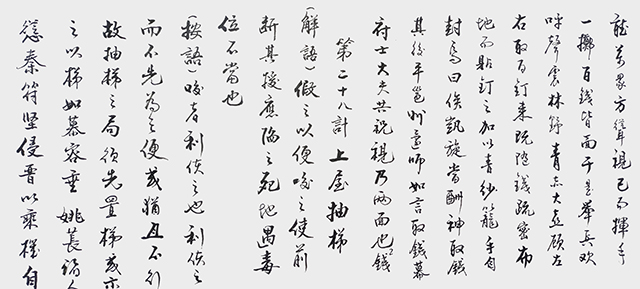 聽萬眾方聳視已而揮手
一擲百錢皆面于是舉兵欢
呼聲震林野青亦大喜顧左
右取百釘来既隨錢疏密布
地而貼釘之加以青紗籠手自
封焉曰俟凱旋當酬神取錢
其後平邕州還師如言取錢幕
府士大夫共祝視乃兩面也錢
第二十八計 上屋抽梯
(解語)假之以便唆之使前
斷其援應陷之死地遇毒
位不當也
(按語)唆者利使之也利使之
而不先為之便或猶且不行
故抽梯之局須先置梯或示
之以梯如慕容垂姚萇諸人
慫秦苻坚侵晋以乘機自